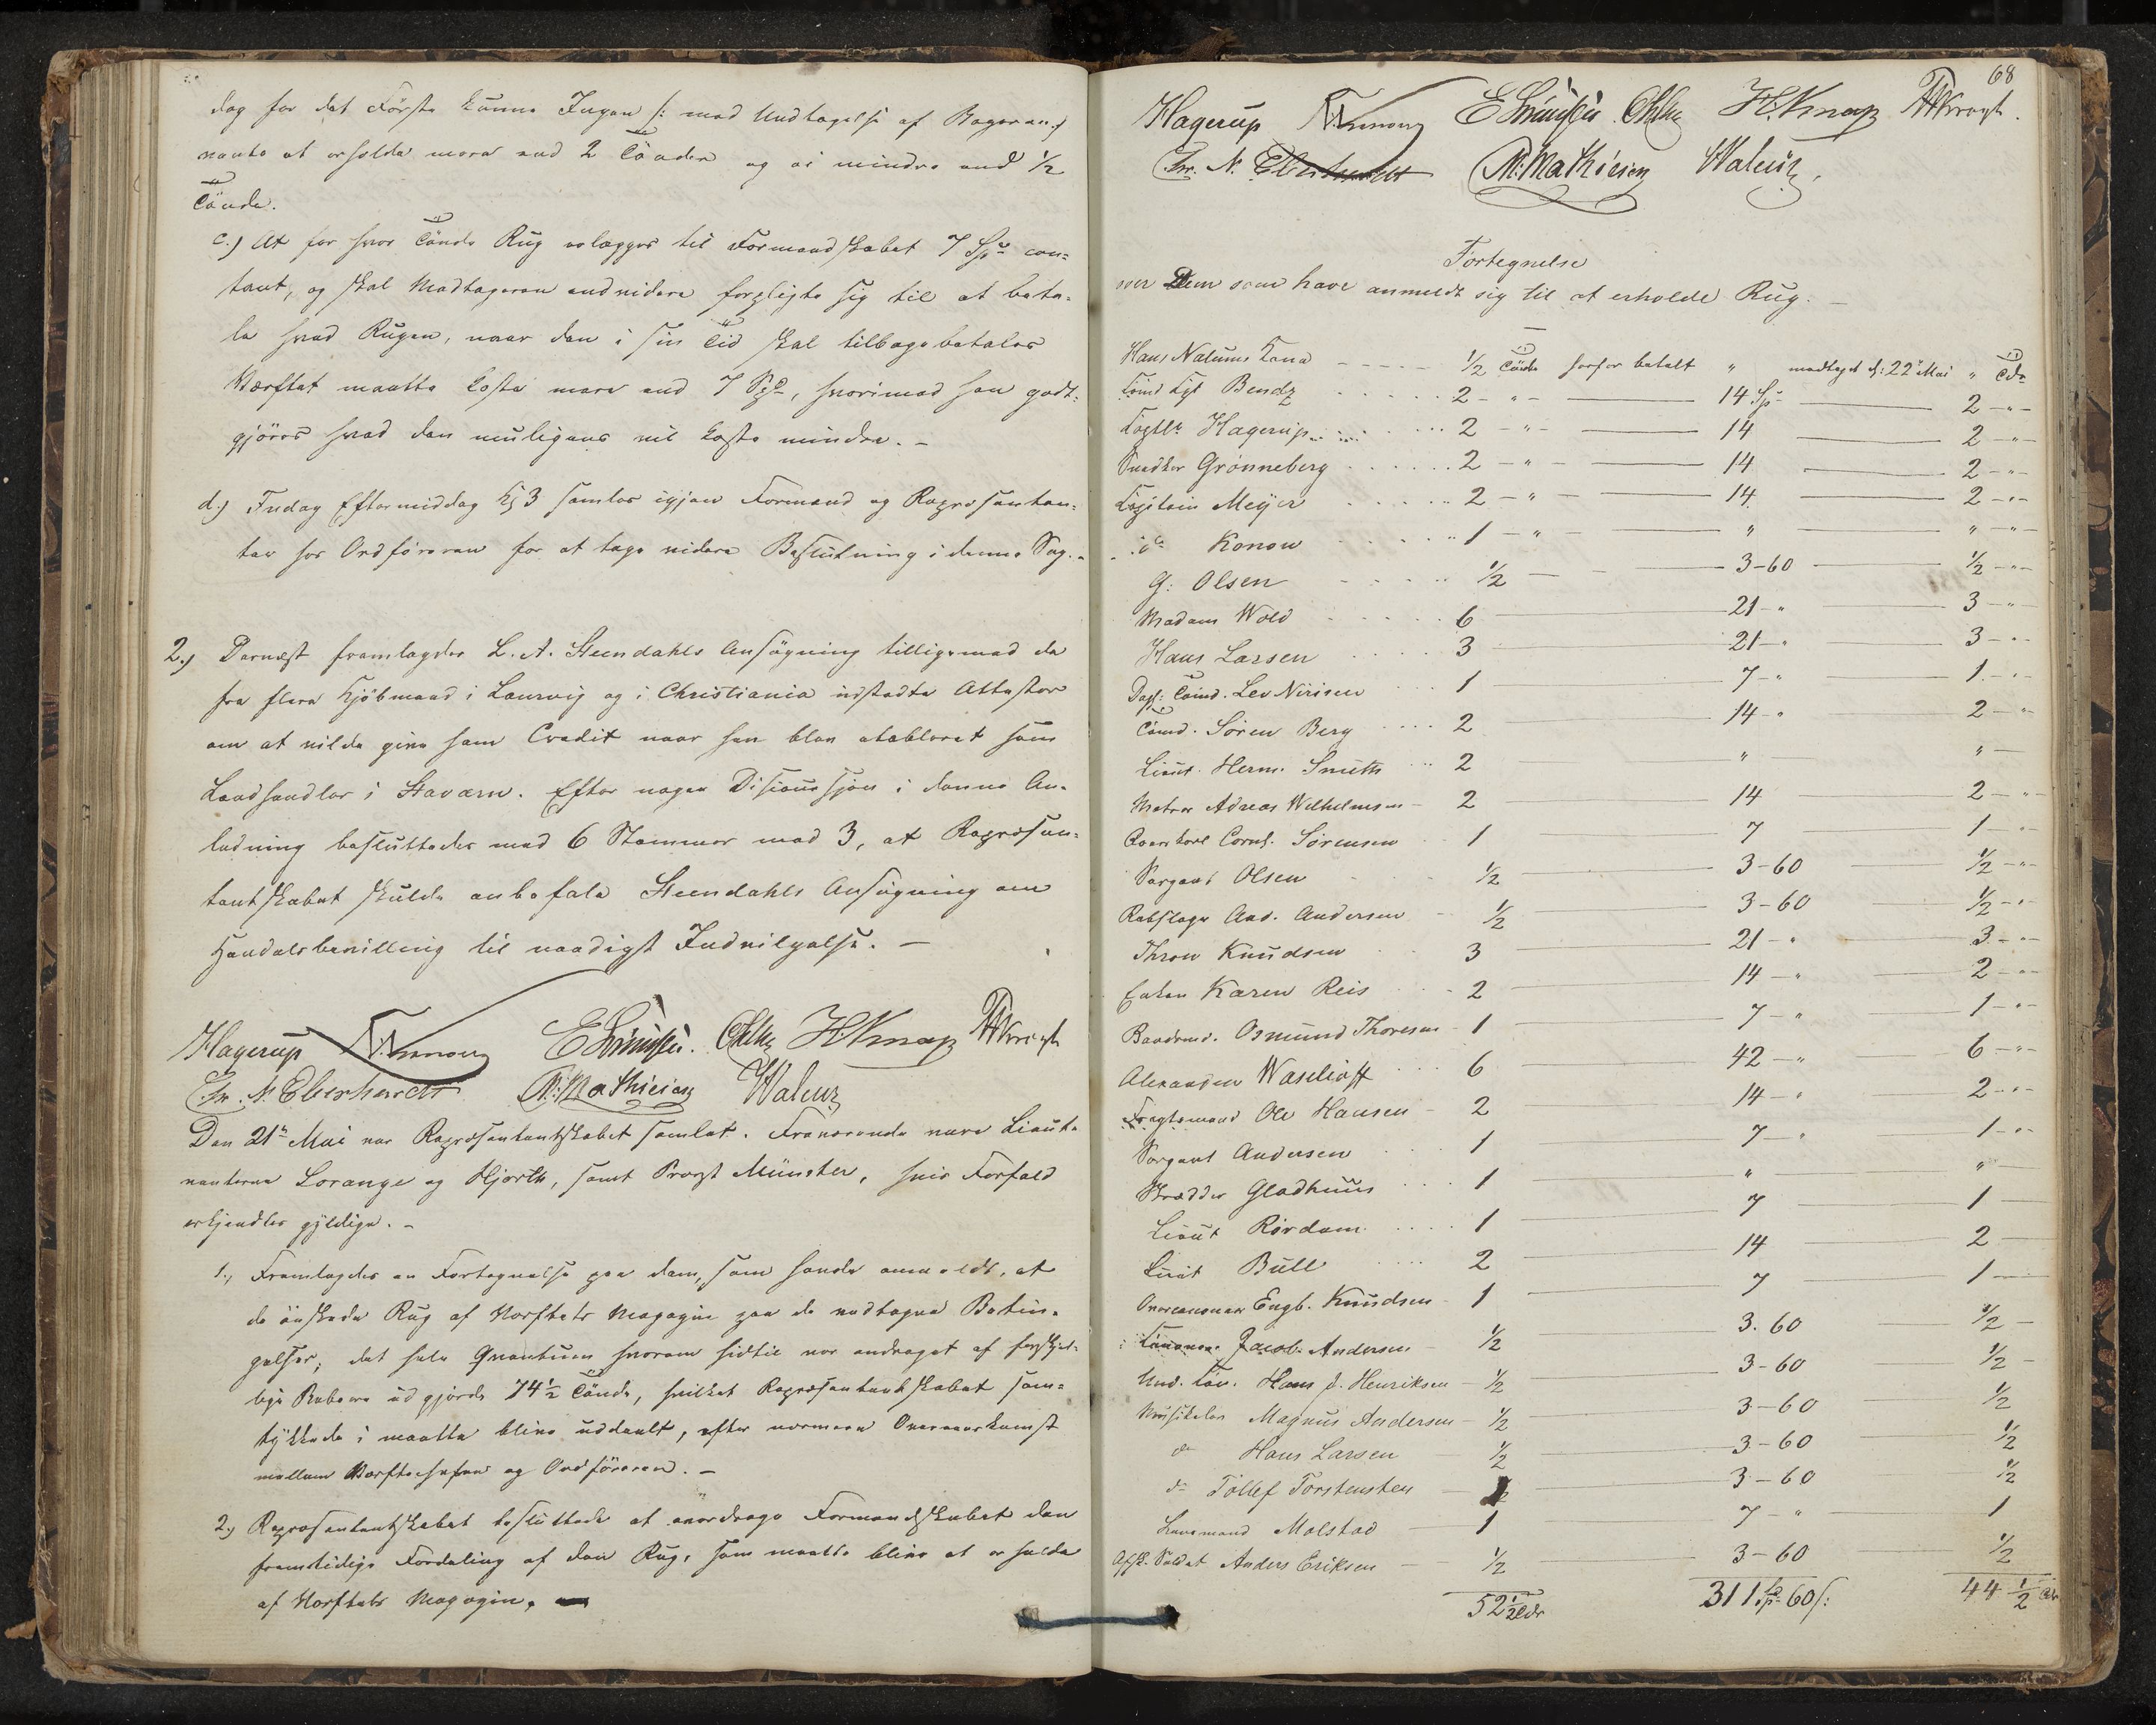 dog for det Første kunne Ingen /: med Undtagelse af Bageren :/
vente at erholde mere end 2 Tönder og ei mindre end 1/2
Tönde.
c.) At for hver Tönde Rug erlægges til Formandskabet 7 Spd con=
tant, og skal Modtageren endvidere forpligte sig til at beta=
le hvad Rugen, naar den i sin Tid skal tilbagebetales
Værftet maatte koste mere end 7 Spd, hvorimod han godt=
gjöres hvad den muligens vil koste mindre. –
d.) Fredag Eftermiddag Kl 3 samles igjen Formænd og Repræsentan=
ter hos Ordföreren for at tage videre Beslutning i denne Sag. –
2.) Dernæst fremlagdes L. A. Steendahls Ansögning tilligemed de
fra flere Kjöbmænd i Laurvig og i Christiania udstedte Attester
om at ville give ham Credit naar han blev etableret som
Landhandler i Staværn. Efter nogen Discussjon i denne An=
ledning besluttedes med 6 Stemmer mod 3, at Repræsen=
tantskabet skulde anbefale Steendahls Ansögning om
Handelsbevilling til naadigst Indvilgelse. –
Hagerup H. Knap
Chr. N. Eberhardt M. Mathiesen
Den 21de Mai var Repræsentantskabet samlet. Fraværende vare Lieute
nanterne Lorange og Hjorth, samt Provst Münster, hvis Forfald
erkjendtes gyldige. –
1., Fremlagdes en Fortegnelse paa dem, som havde anmeldt, at
de önskede Rug af Værftets Magazin paa de vedtagne Betin=
gelser; det hele Qvantum hvorom hidtil var andraget af forskjel=
lige Beboere udgjorde 74 1/2 Tönde, hvilket Repræsentantskabet sam=
tykkede i maatte blive uddeelt, efter nærmere Overeenskomst
mellem Værftschefen og Ordföreren. –
2.) Repræsentantskabet besluttede at overdrage Formandskabet den
fremtidige Fordeling af den Rug, som maatte blive at erholde
af Værftets Magazin.
68
Hagerup H. Knap
Chr. N. Eberhardt M. Mathiesen
Fortegnelse
over Dem som have anmeldt sig til at erholde Rug. –
Hans Natum 1/2 Tönde herfor betalt " modtaget d: 22de Mai " Tdr
Bendz 2 – " – 14 Sp 2 – " –
Hagerup 2 – " – 14 2 – " –
Snedker Grönneberg 2 – " – 14 2 – " –
Capitain Meyer 2 – " – 14 2 – " –
do Konow 1 – " – " " – " –
G. Olsen 1/2 3–60 1/2 – " –
Madam Wold 6 21 – " 3 – "
Hans Larsen 3 21 – " 3 – "
Lev Nirisen 1 7 – " 1 – "
Tömd. Sören Berg 2 14 – " 2 – "
Lieut. Herm. Smith 2 " "
Adreas Wilhelmsen 2 14 2 – "
Corns. Sörensen 1 7 1 – "
Sergent Olsen 1/2 3–60 1/2 – "
Rebslager And. Andersen 1/2 3–60 1/2 – "
Thron Knudsen 3 21 – " 3 – "
Enken Karen Reis 2 14 – " 2 – "
Osmund Thoresen 1 7 – " 1 – "
Alexander Waselioff 6 42 – " 6 – "
Fragtemand Ole Hansen 2 14 – " 2 – "
Sergent Andersen 1 7 – " 1 – "
Skrædder Gladhuus 1 " "
Lieut Rördam 1 7 1
Lieut Bull 2 14 2
Engb. Knudsen 1 7 1
Jacob Andersen 1/2 3.60 1/2
Und. Hans J. Henriksen 1/2 3–60 1/2
Musikeler Magnus Andersen 1/2 3–60 1/2
do Hans Larsen 1/2 3–60 1/2
do Tollef Torstensten 1/2 3–60 1/2
Lensmand Molstad 1 7 – " 1
Afsk. Soldat Anders Eriksen 1/2 3–60 1/2
52 1/2 Tdr 311 Sp 60 s: 44 1/2 Tdr